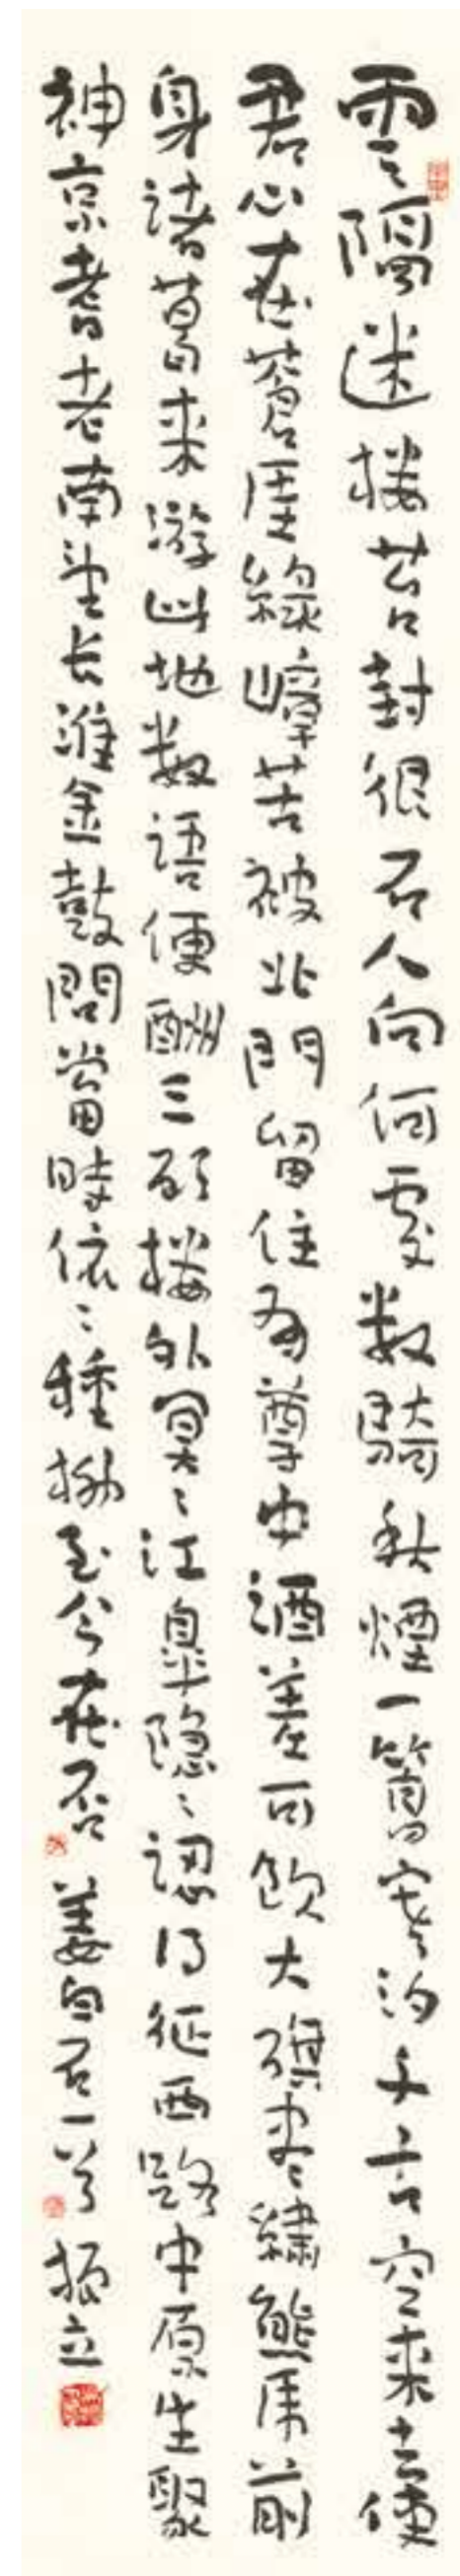 雲隔迷楼苔封很石人向何處数騎秋煙一篙寒汐千古空来去使
君心在蒼厓緑嶂苦被北門留住有尊中酒差可飲大旗枣繡熊虎前
身諸葛来游此地数語便酬三顾楼外冥〻江皋隐〻認得征西路中原生聚
神京耆老南望长淮金鼓問當時依〻種柳至今在否 姜白石一首 振立